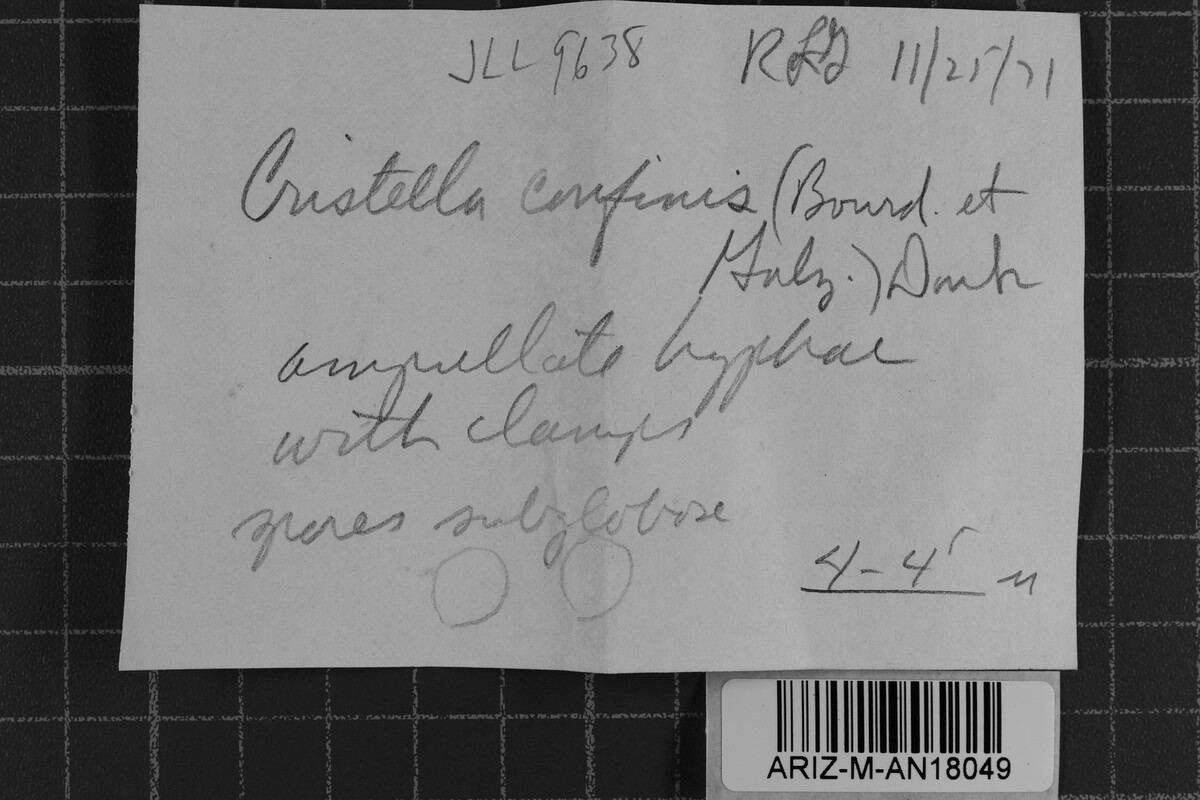 JLL 9638 RLG 11/25/71
Cristella confinis (Bourd. et
Galz.) Donk
ampullate hyphae
with clamps
spores subglobose
4-4⁵ u
ARIZ-M-AN18049